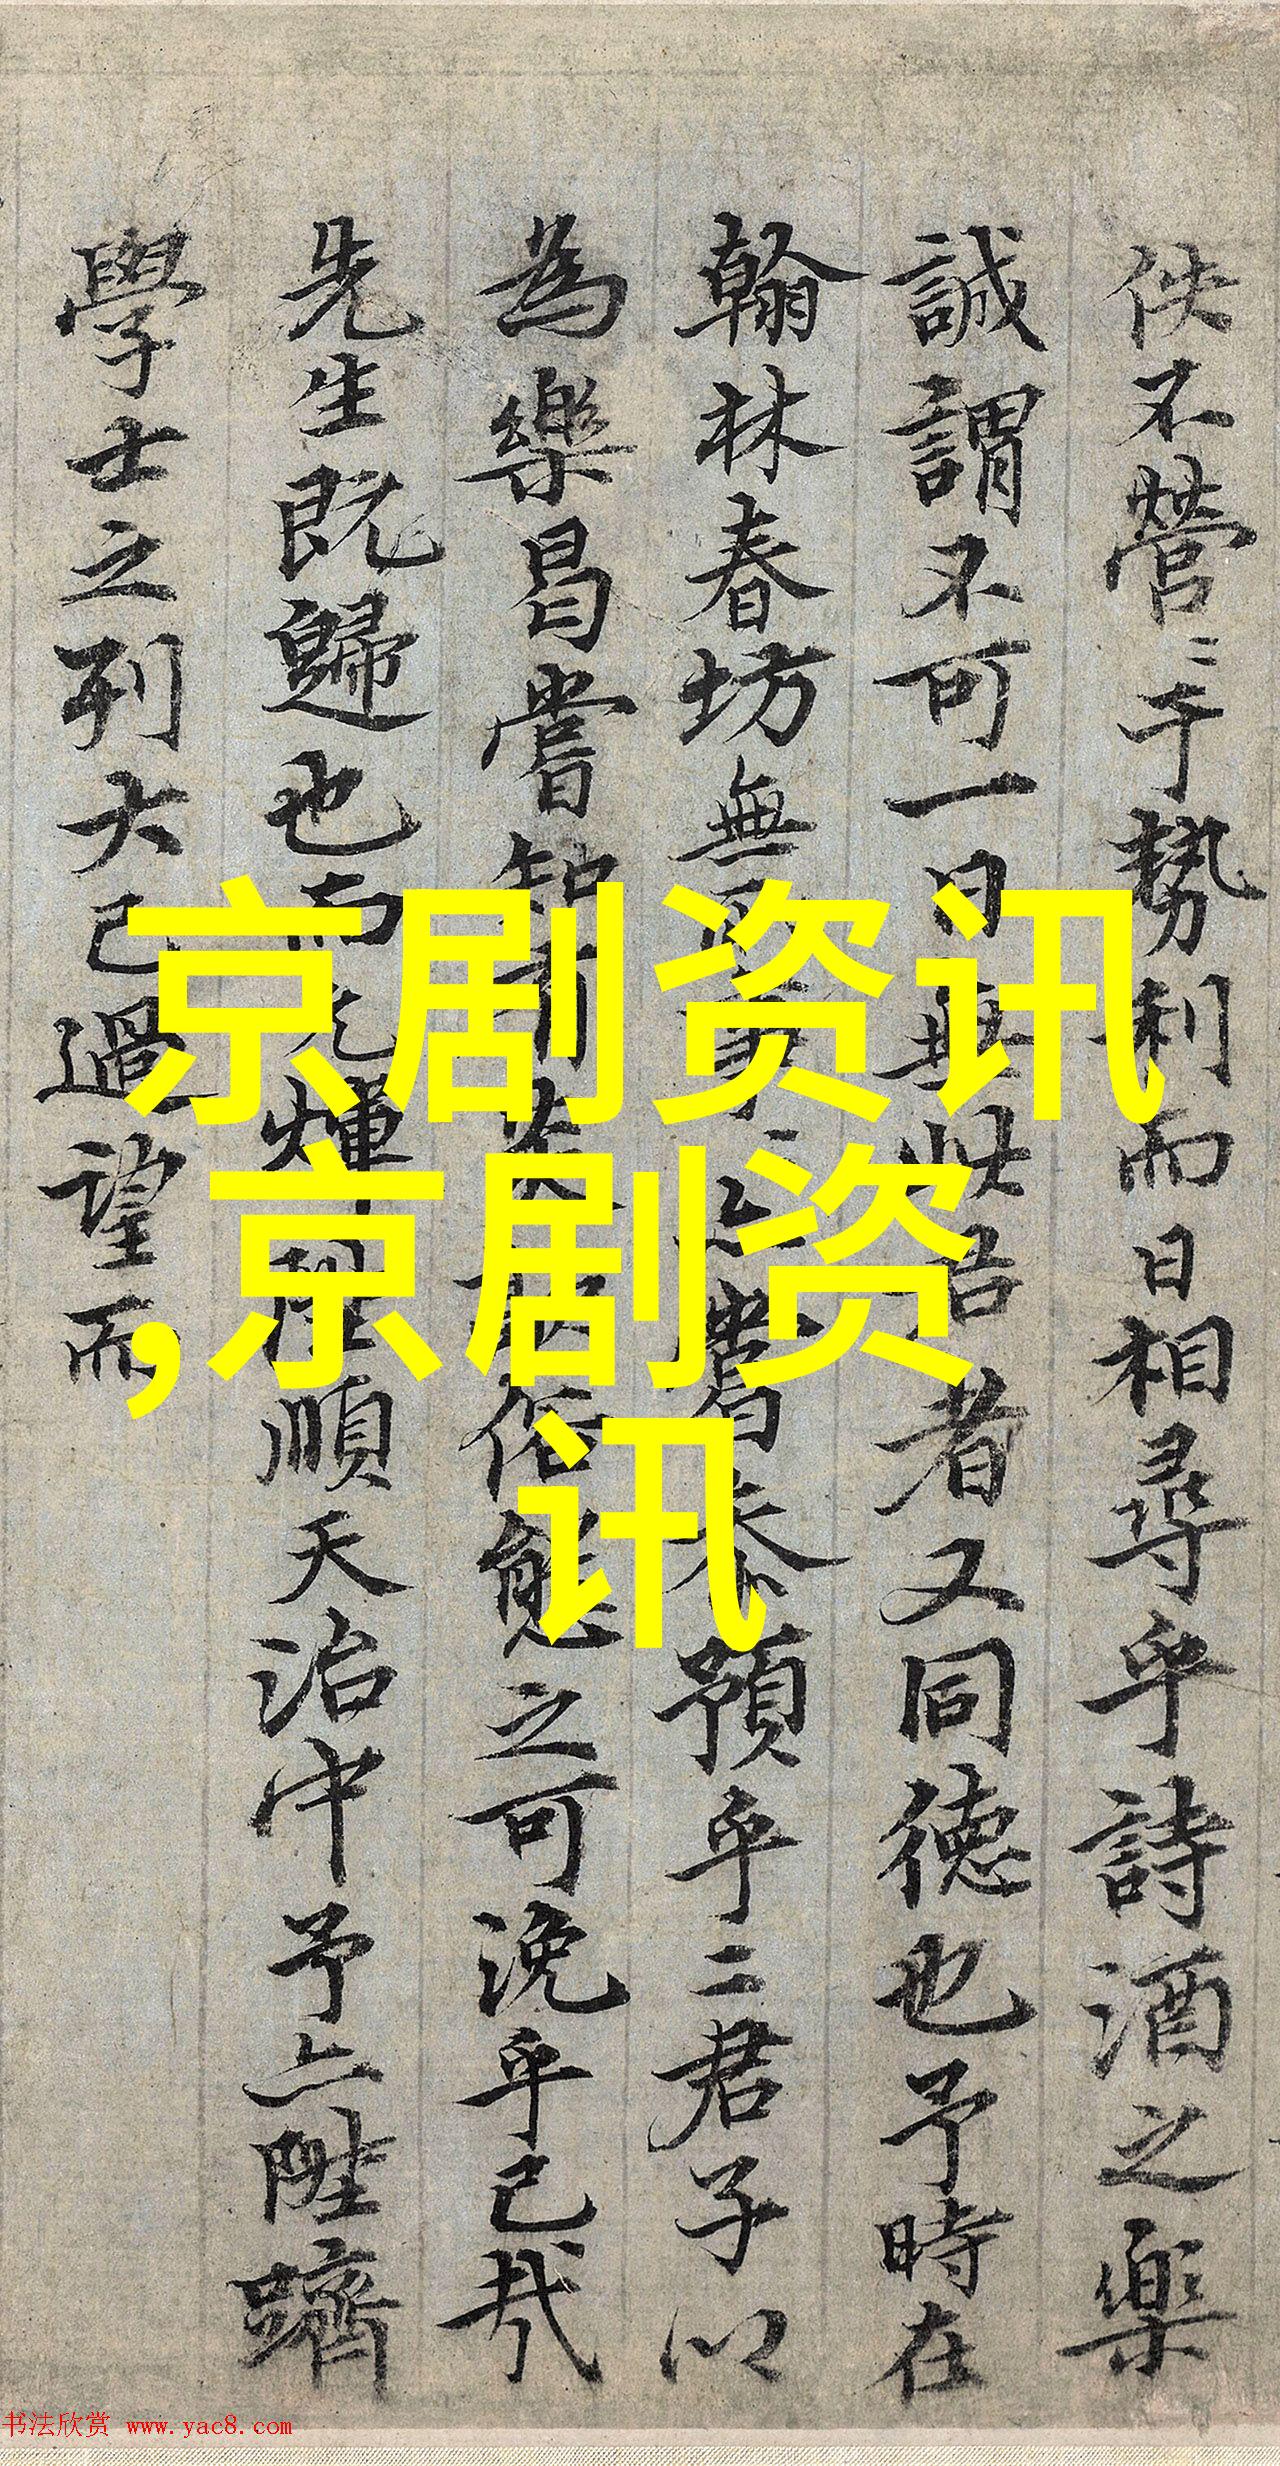 佚不營〻于勢利而日相尋乎詩酒之樂
誠謂不可一日無此吾者又同德也予時在
翰林春坊無預乎二君子以
為樂曷嘗知有俗態之可浼乎己哉
先生既歸也而光輝順天治中予亦陞躋
學士之列大已過望而
京剧资讯
,京剧资
讯
书法欣赏 www.yac8.com